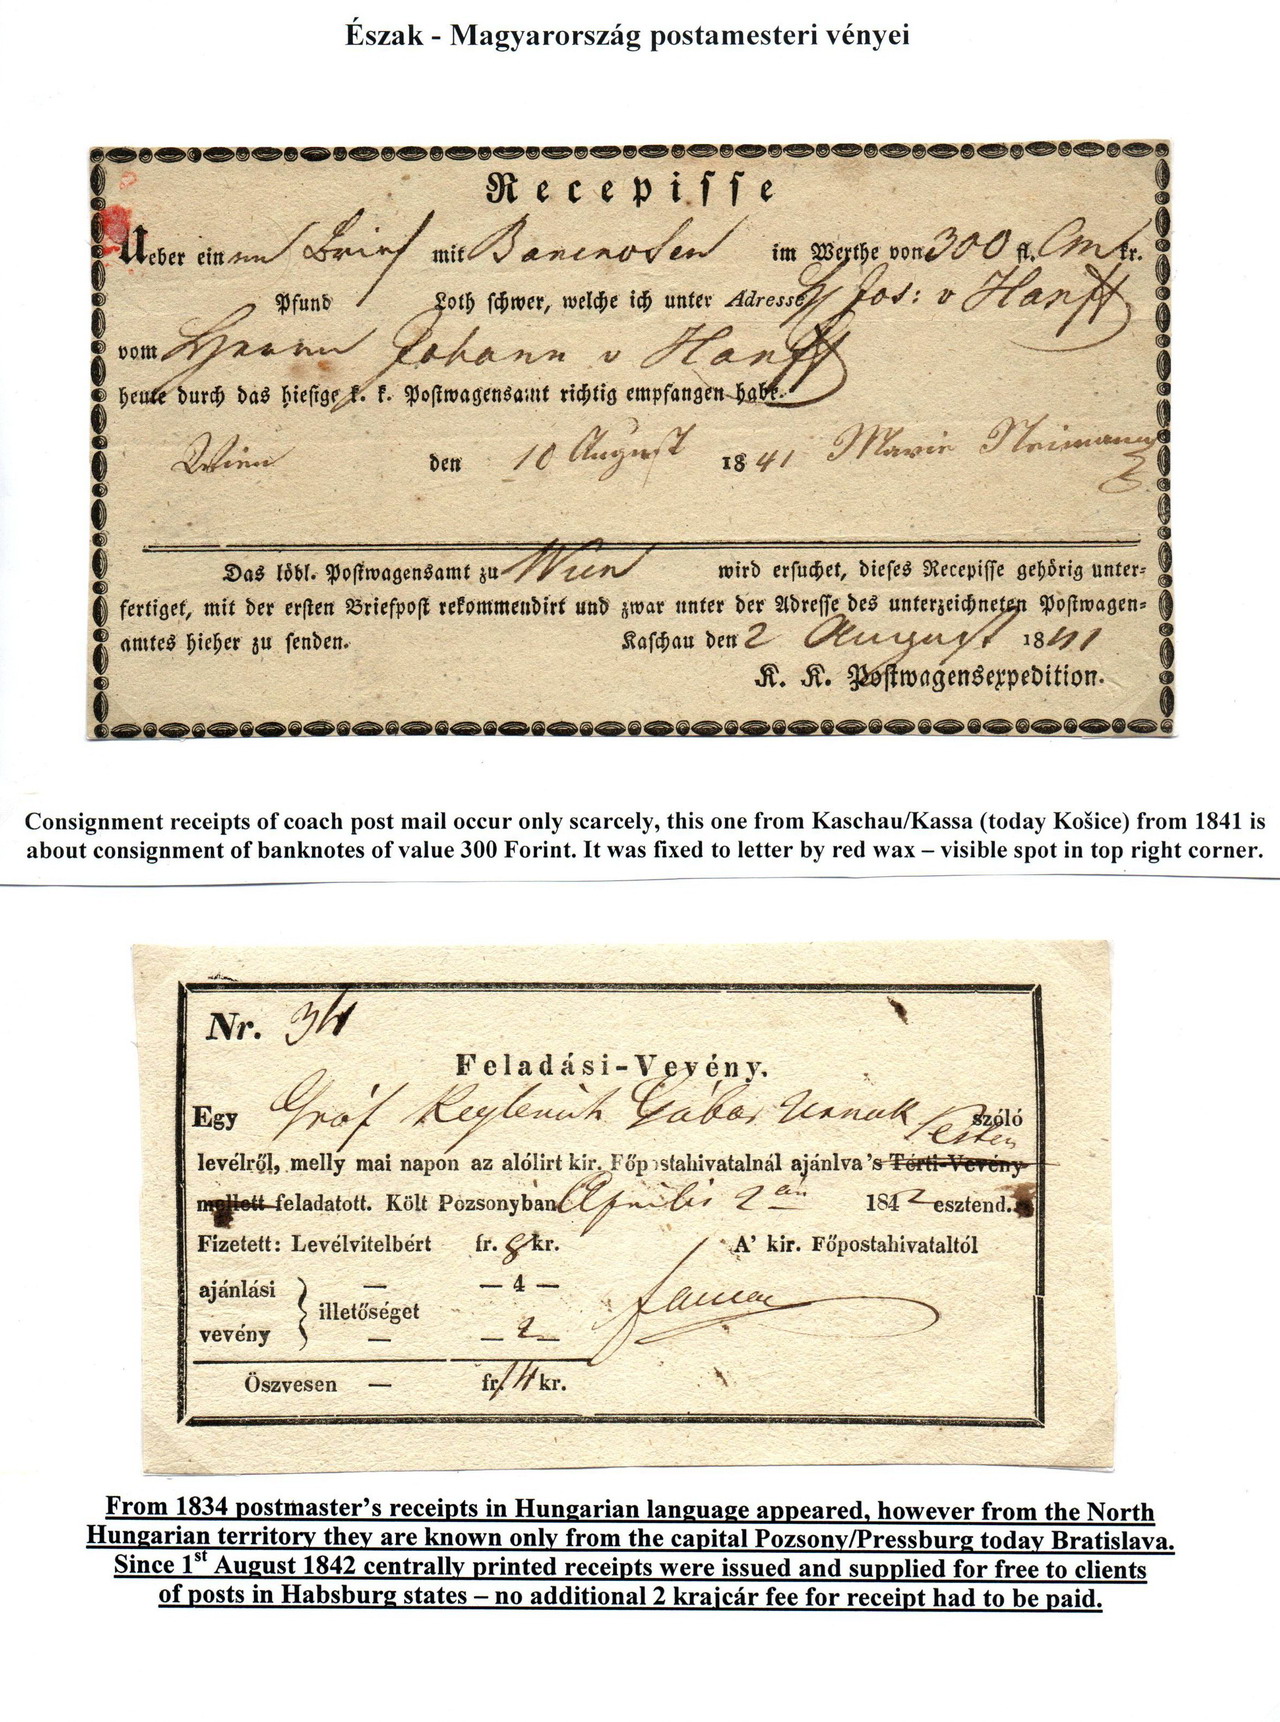 Észak - Magyarország postamesteri vényei
Recepisse
Ueber einen Brief mit Bancnoten im Werthe von 300 fl. Cm kr.
Pfund Loth schwer, welche ich unter Adresse H Jos: v Hanfft
vom Herrn Johann v Hanfft
heute durch das hiesige k. k. Postwagensamt richtig empfangen habe.
Wien den 10 August 1841 Marie
Das löbl. Postwagensamt zu Wien wird ersuchet, dieses Recepisse gehörig unter-
fertiget, mit der ersten Briefpost rekommendirt und zwar unter der Adresse des unterzeichneten Postwagen-
amtes hieher zu senden. Kaschau den 2 August 1841
K. K. Postwagensexpedition.
Consignment receipts of coach post mail occur only scarcely, this one from Kaschau/Kassa (today Košice) from 1841 is
about consignment of banknotes of value 300 Forint. It was fixed to letter by red wax – visible spot in top right corner.
Nr. 34
Feladási-Vevény.
Egy Gróf Gábor Urnak Pesten szóló
levélről, melly mai napon az alólirt kir. Főpostahivatalnál ajánlva 's Térti-Vevény
mellett feladatott. Költ Pozsonyban Április 2án 1842 esztend.
Fizetett: Levélvitelbért fr. 8 kr. A' kir. Főpostahivataltól
ajánlási — — 4 —
illetőséget
vevény — — 2 —
Öszvesen — fr. 14 kr.
From 1834 postmaster's receipts in Hungarian language appeared, however from the North
Hungarian territory they are known only from the capital Pozsony/Pressburg today Bratislava.
Since 1st August 1842 centrally printed receipts were issued and supplied for free to clients
of posts in Habsburg states – no additional 2 krajcár fee for receipt had to be paid.